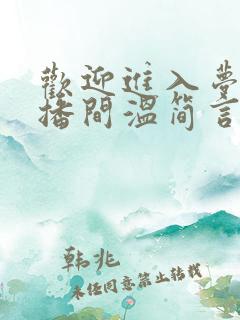 歡迎進入夢
播間溫簡言
韩兆
未经同意禁止转载